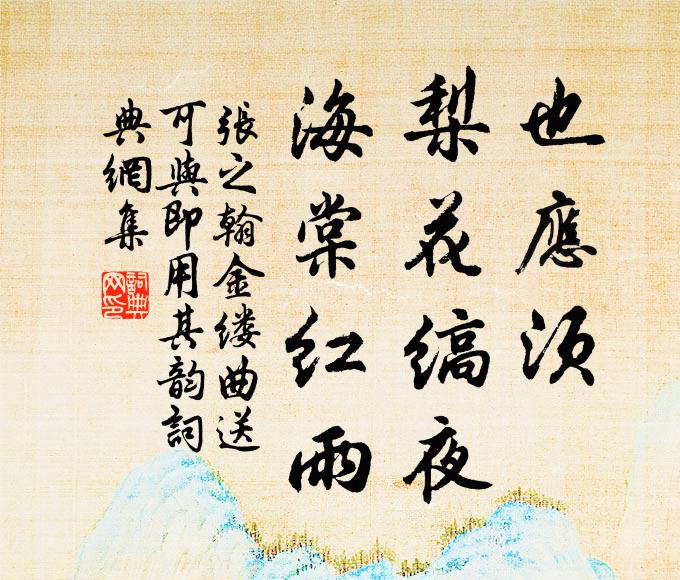 也應須
梨花縞夜
海棠紅雨
張之翰金缕曲送
可與即用其韵詞
典網集
詞典
网印